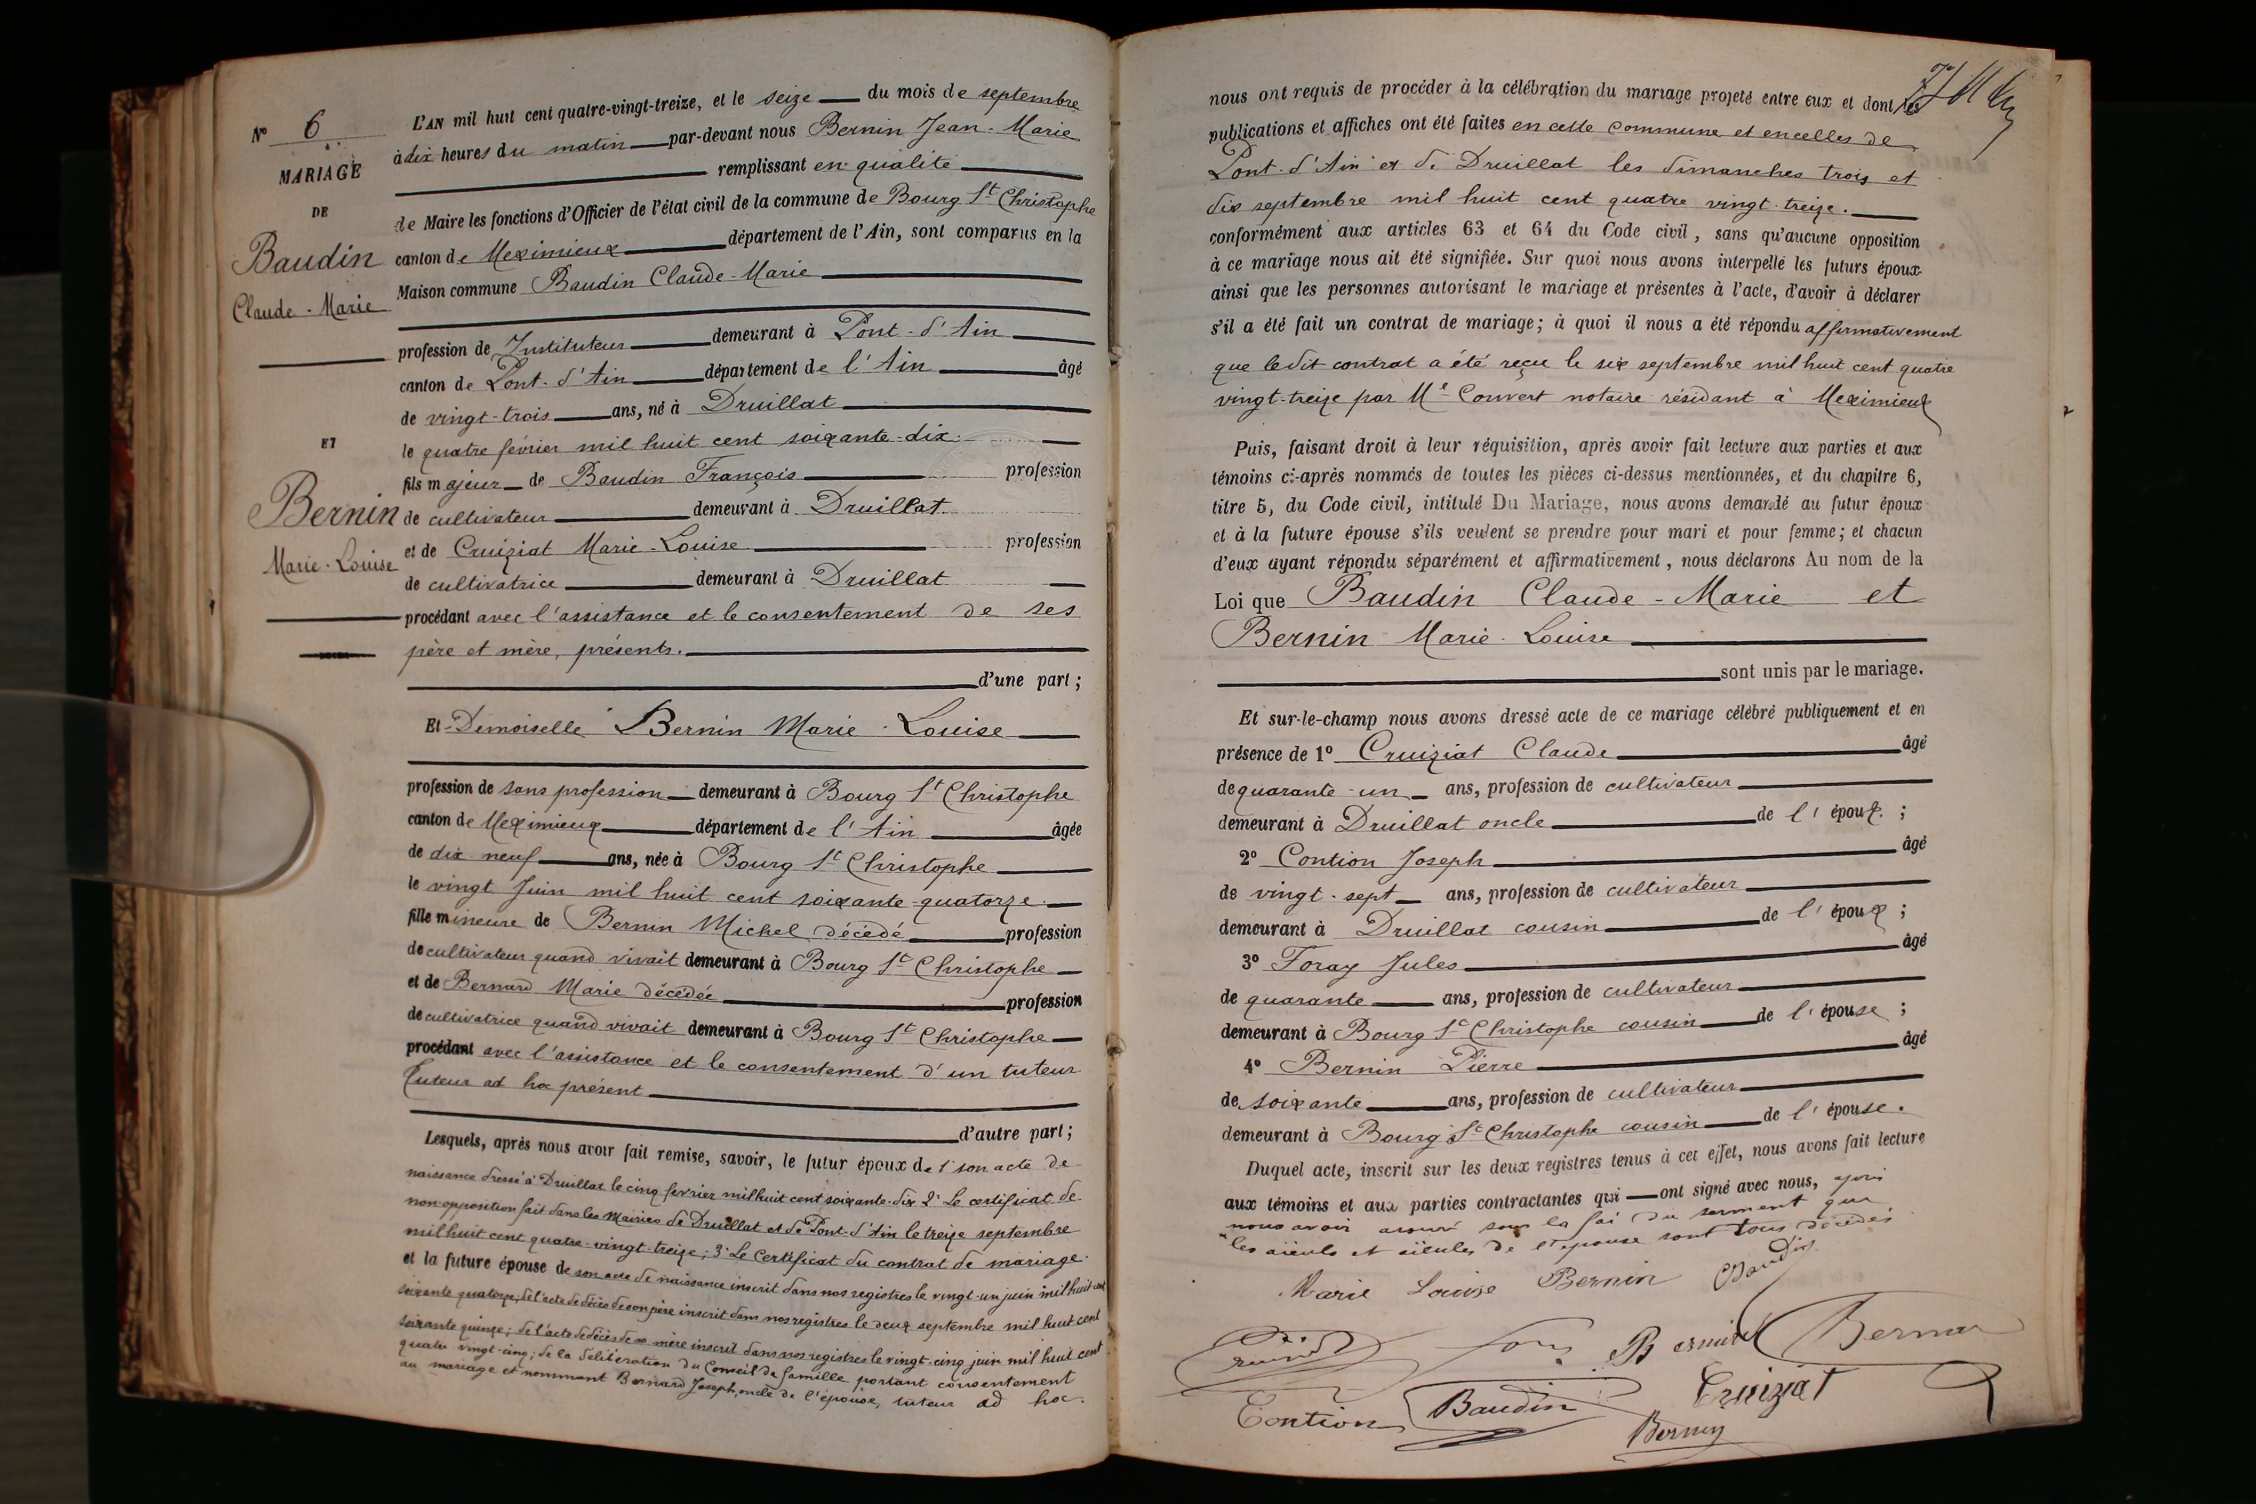 N° 6
MARIAGE
DE
Baudin
Claude-Marie
ET
Bernin
Marie-Louise
L'AN mil huit cent quatre-vingt-treize, et le seize du mois de septembre
à dix heures du matin par-devant nous Bernin Jean-Marie
remplissant en qualité
de Maire les fonctions d'Officier de l'état civil de la commune de Bourg St Christophe
canton de Meximieux département de l'Ain, sont comparus en la
Maison commune Baudin Claude-Marie
profession de Instituteur demeurant à Pont-d'Ain
canton de Pont-d'Ain département de l'Ain âgé
de vingt-trois ans, né à Druillat
le quatre février mil huit cent soixante-dix
fils majeur de Baudin François profession
de cultivateur demeurant à Druillat
et de Cruiziat Marie-Louise profession
de cultivatrice demeurant à Druillat
procédant avec l'assistance et le consentement de ses
père et mère, présents.
d'une part;
Et Demoiselle Bernin Marie-Louise
profession de sans profession demeurant à Bourg St Christophe
canton de Meximieux département de l'Ain âgée
de dix neuf ans, née à Bourg St Christophe
le vingt Juin mil huit cent soixante-quatorze.
fille mineure de Bernin Michel décédé profession
de cultivateur quand vivait demeurant à Bourg St Christophe
et de Bernard Marie décédée profession
de cultivatrice quand vivait demeurant à Bourg St Christophe
procédant avec l'assistance et le consentement d'un tuteur
Tuteur ad hoc présent
d'autre part;
Lesquels, après nous avoir fait remise, savoir, le futur époux de 1° son acte de
naissance dressé à Druillat le cinq fevrier mil huit cent soixante-dix 2° Le certificat de
non opposition fait dans les Mairies de Druillat et de Pont-d'Ain le treize septembre
mil huit cent quatre-vingt-treize; 3° Le Certificat du contrat de mariage.
et la future épouse de son acte de naissance inscrit dans nos registres le vingt-un juin mil huit cent
soixante quatorze, de l'acte de décès de son père inscrit dans nos registres le deux septembre mil huit cent
soixante quinze; de l'acte de décès de sa mère inscrit dans nos registres le vingt-cinq juin mil huit cent
quatre vingt-cinq; de la délibération du Conseil de famille portant consentement
au mariage et nommant Bernard Joseph, oncle de l'épouse, tuteur ad hoc.
nous ont requis de procéder à la célébration du mariage projeté entre eux et dont les
publications et affiches ont été faites en cette commune et en celles de
Pont-d'Ain et de Druillat les dimanches trois et
dix septembre mil huit cent quatre vingt-treize.
conformément aux articles 63 et 64 du Code civil, sans qu'aucune opposition
à ce mariage nous ait été signifiée. Sur quoi nous avons interpellé les futurs époux
ainsi que les personnes autorisant le mariage et présentes à l'acte, d'avoir à déclarer
s'il a été fait un contrat de mariage; à quoi il nous a été répondu affirmativement
que ledit contrat a été reçu le six septembre mil huit cent quatre
vingt-treize par Me Convert notaire résidant à Meximieux
Puis, faisant droit à leur réquisition, après avoir fait lecture aux parties et aux
témoins ci-après nommés de toutes les pièces ci-dessus mentionnées, et du chapitre 6,
titre 5, du Code civil, intitulé Du Mariage, nous avons demandé au futur époux
et à la future épouse s'ils veulent se prendre pour mari et pour femme; et chacun
d'eux ayant répondu séparément et affirmativement, nous déclarons Au nom de la
Loi que Baudin Claude-Marie et
Bernin Marie-Louise
sont unis par le mariage.
Et sur-le-champ nous avons dressé acte de ce mariage célébré publiquement et en
présence de 1° Cruiziat Claude âgé
de quarante-un ans, profession de cultivateur
demeurant à Druillat oncle de l'époux;
2° Contion Joseph âgé
de vingt-sept ans, profession de cultivateur
demeurant à Druillat cousin de l'époux;
3° Foray Jules âgé
de quarante ans, profession de cultivateur
demeurant à Bourg St Christophe cousin de l'épouse;
4° Bernin Pierre âgé
de soixante ans, profession de cultivateur
demeurant à Bourg St Christophe cousin de l'épouse.
Duquel acte, inscrit sur les deux registres tenus à cet effet, nous avons fait lecture
aux témoins et aux parties contractantes qui ont signé avec nous,
nous avoir assuré sous la foi du serment que
les aïeuls et aïeules de l'épouse sont tous décédés
Marie Louise Bernin Baudin
Bernin
Contion Baudin Cruiziat
Bernin